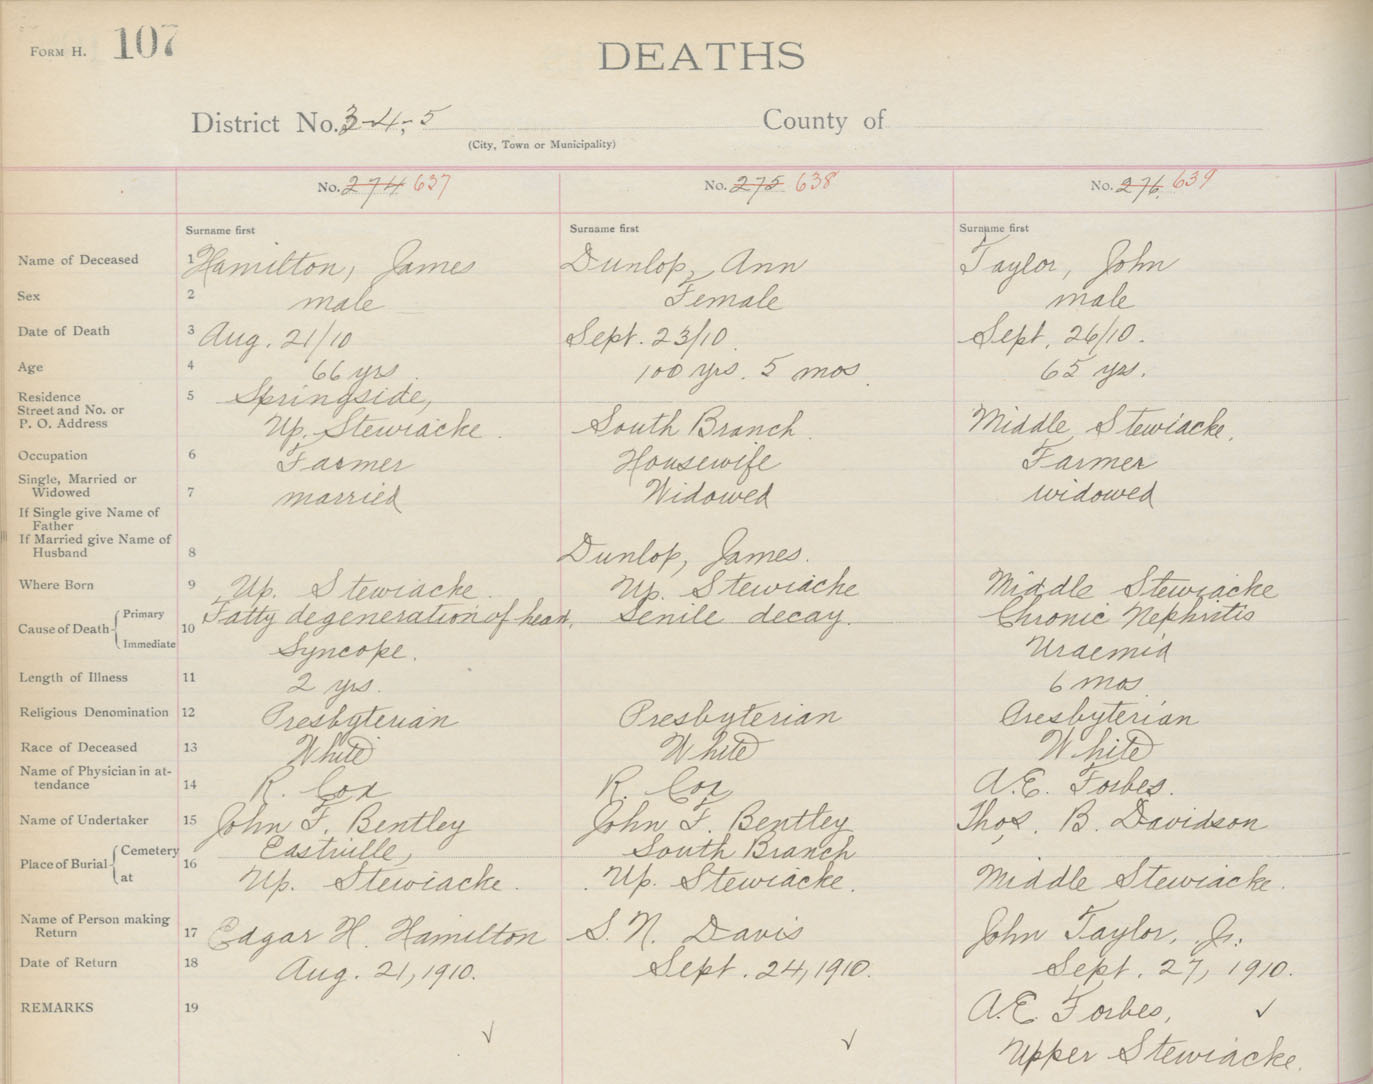 FORM H. 107
DEATHS
District No. 3-4-5 County of
(City, Town or Municipality)
No. 274 637 No. 275 638 No. 276 639
Surname first Surname first Surname first
Name of Deceased 1 Hamilton, James Dunlop, Ann Taylor, John
Sex 2 male Female male
Date of Death 3 Aug. 21/10 Sept. 23/10. Sept. 26/10.
Age 4 66 yrs. 100 yrs. 5 mos. 65 yrs.
Residence 5 Springside,
Street and No. or
P. O. Address Up. Stewiacke. South Branch. Middle Stewiacke.
Occupation 6 Farmer Housewife Farmer
Single, Married or
Widowed 7 married Widowed widowed
If Single give Name of
Father
If Married give Name of
Husband 8 Dunlop, James.
Where Born 9 Up. Stewiacke. Up. Stewiacke Middle Stewiacke
Cause of Death Primary 10 Fatty degeneration of heart, Senile decay. Chronic Nephritis
Immediate Syncope. Uraemia
Length of Illness 11 2 yrs. 6 mos.
Religious Denomination 12 Presbyterian Presbyterian Presbyterian
Race of Deceased 13 White White White
Name of Physician in at-
tendance 14 R. Cox R. Cox A.E. Forbes.
Name of Undertaker 15 John F. Bentley John F. Bentley Thos. B. Davidson
Place of Burial Cemetery 16 Eastville, South Branch
at Up. Stewiacke. Up. Stewiacke. Middle Stewiacke.
Name of Person making
Return 17 Edgar H. Hamilton S. N. Davis John Taylor, Jr.
Date of Return 18 Aug. 21, 1910. Sept. 24, 1910. Sept. 27, 1910.
REMARKS 19 A.E. Forbes, ✓
✓ ✓ Upper Stewiacke.